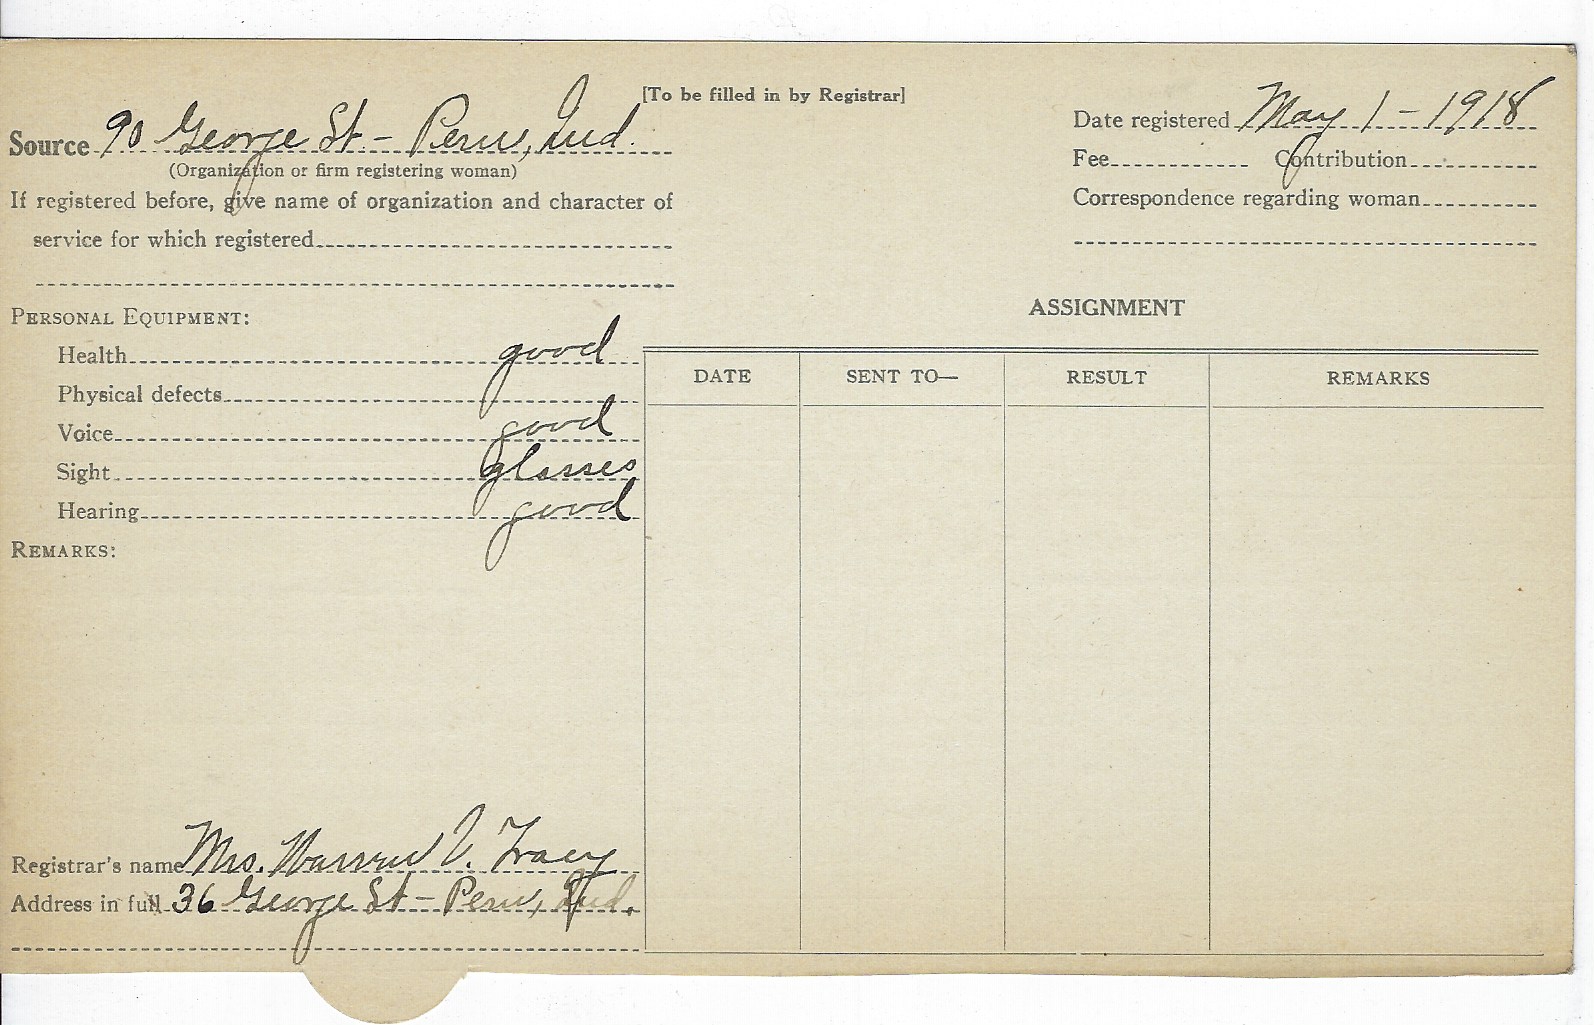 [To be filled in by Registrar]
Source 90 George St - Peru, Ind.
(Organization or firm registering woman)
If registered before, give name of organization and character of
service for which registered
Date registered May 1 - 1918
Fee Contribution
Correspondence regarding woman
PERSONAL EQUIPMENT:
Health good
Physical defects
Voice good
Sight glasses
Hearing good
REMARKS:
ASSIGNMENT
DATE SENT TO— RESULT REMARKS
Registrar's name Mrs. Warren V. Tracy
Address in full 36 George St - Peru, Ind.